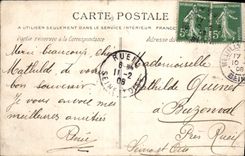 CARTE POSTALE
A UTILISER SEULEMENT DANS LE SERVICE INTERIEUR, FRANCE
Partie réservée à la Correspondance
Merci beaucoup, chère
Mathilde de votre
bon souvenir.
Je vous envoie mes
meilleures amitiés
RUEIL
11-2
08
SEINE
5c
5c
Mademoiselle
Mathilde Quenet
à Buzenval
Près Rueil
Seine et Oise